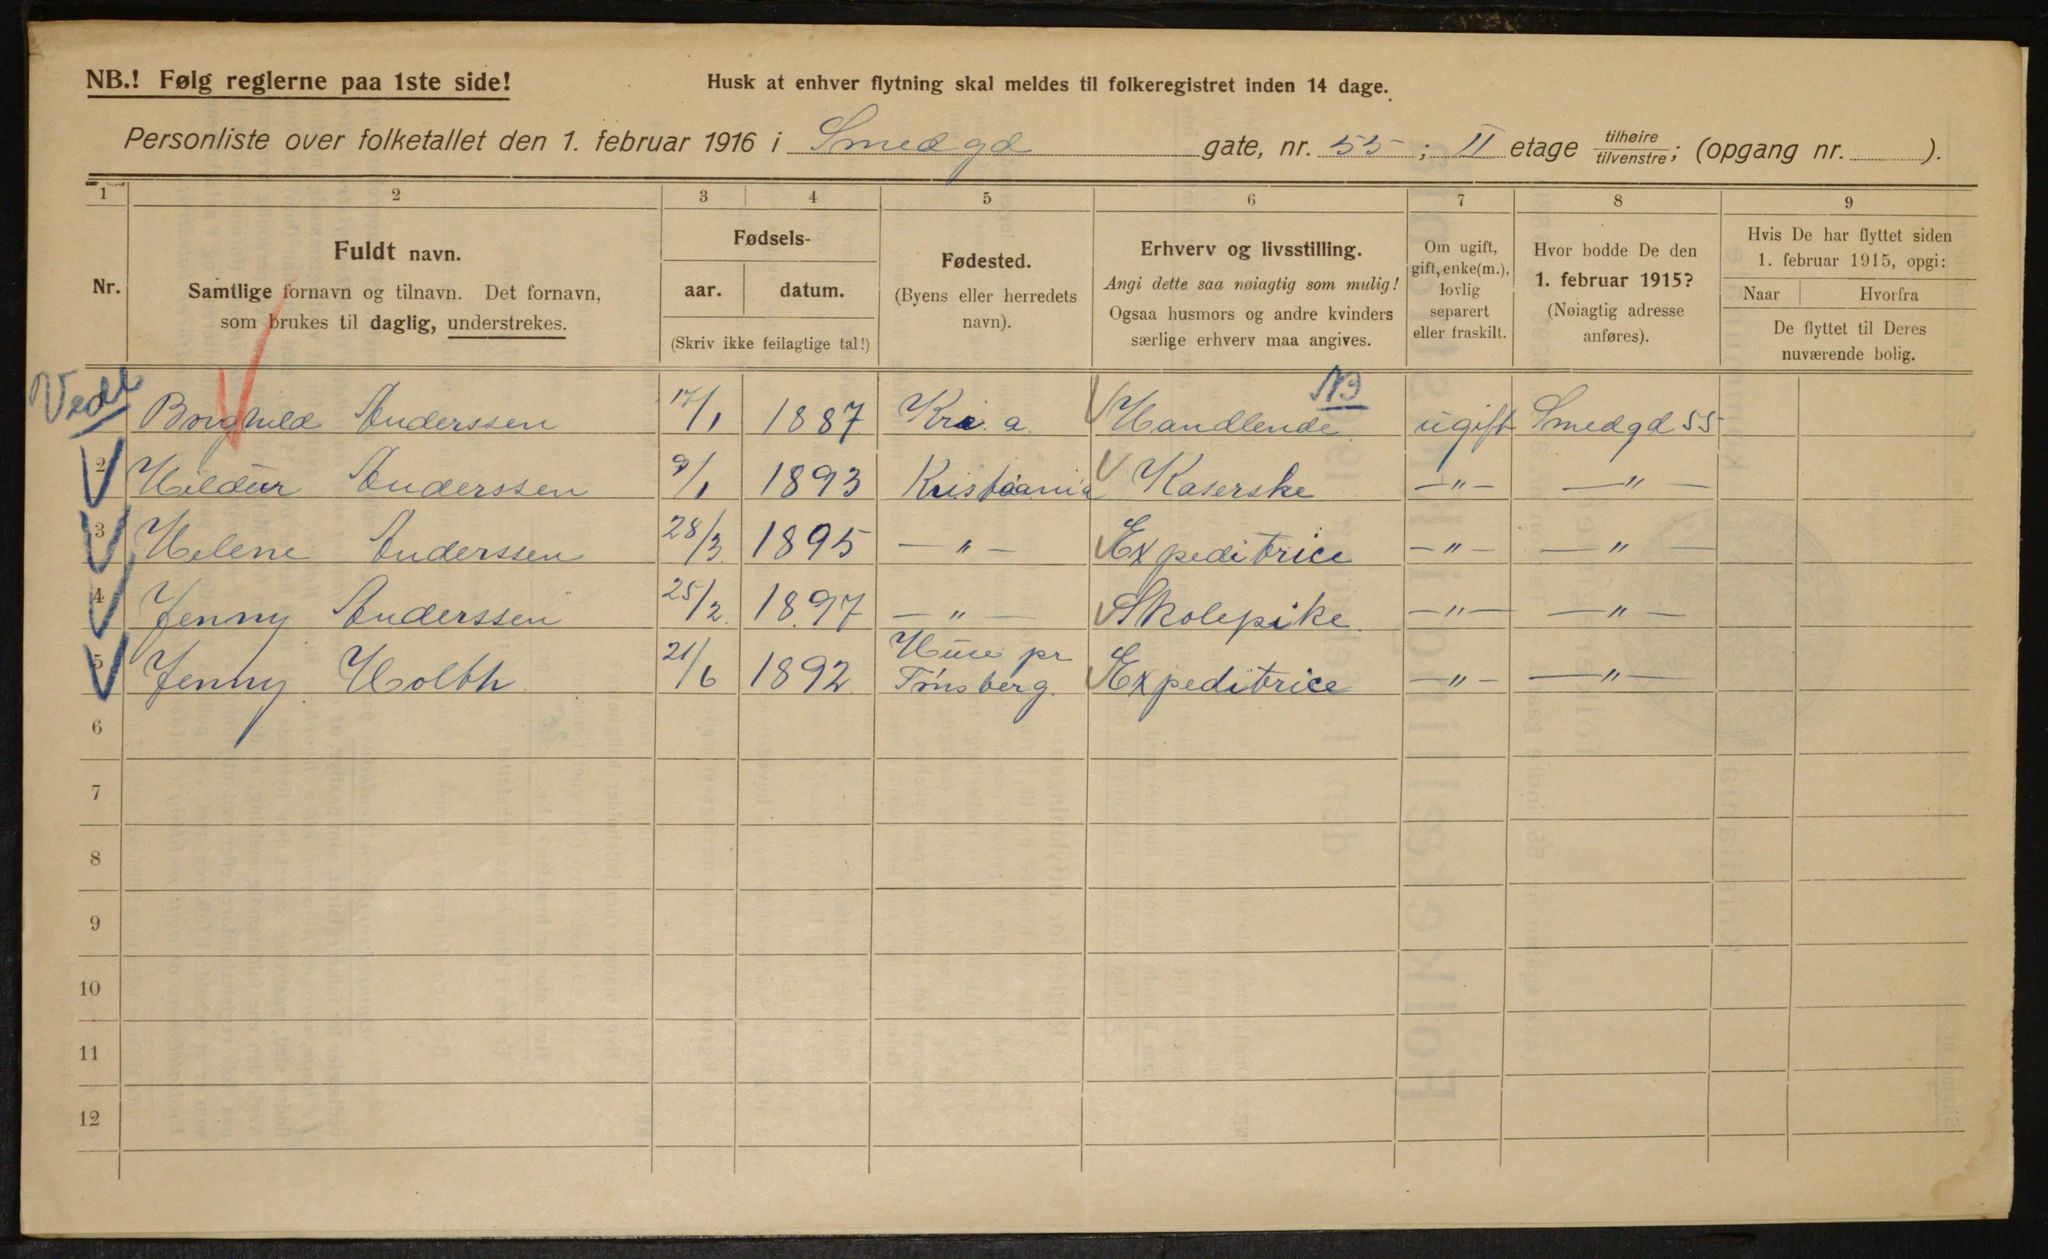 NB.! Følg reglerne paa 1ste side!
Husk at enhver flytning skal meldes til folkeregistret inden 14 dage.
Personliste over folketallet den 1. februar 1916 i Smedgd gate, nr. 55 ; II etage tilhøire/tilvenstre; (opgang nr. ).
1 2 3 4 5 6 7 8 9
Nr.
Fuldt navn.
Samtlige fornavn og tilnavn. Det fornavn,
som brukes til daglig, understrekes.
Fødsels-
aar. datum.
(Skriv ikke feilagtige tal!)
Fødested.
(Byens eller herredets
navn).
Erhverv og livsstilling.
Angi dette saa nøiagtig som mulig!
Ogsaa husmors og andre kvinders
særlige erhverv maa angives.
Om ugift,
gift, enke(m.),
lovlig
separert
eller fraskilt.
Hvor bodde De den
1. februar 1915?
(Nøiagtig adresse
anføres).
Hvis De har flyttet siden
1. februar 1915, opgi:
Naar Hvorfra
De flyttet til Deres
nuværende bolig.
Borghild Anderssen 17/1 1887 Kria. a. Handlende ugift Smedgd 55
2 Hildur Anderssen 9/1 1893 Kristiania Kaserske —"— —"—
3 Helene Anderssen 28/3 1895 —"— Expeditrice —"— —"—
4 Jenny Anderssen 25/2 1897 —"— Skolepike —"— —"—
5 Jenny Holth 21/6 1892 pr Tønsberg. Expeditrice —"— —"—
6
7
8
9
10
11
12